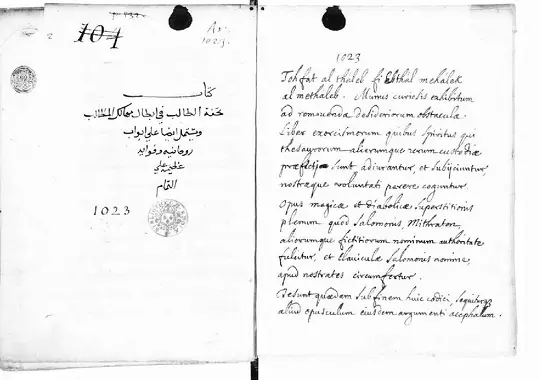 104
Ar.
1023.
2
كتاب
تحفة الطالب في ابطال مهالك المطالب
ويشتمل ايضا على ابواب
روحانيه وفوايد
على
التمام
1023
1023
Tohfat al thaleb fi Ebthal mehâlek
al methaleb. Munus curiosis exhibitum
ad removenda desideriorum obstacula.
Liber exorcismorum quibus spiritus qui
thesaurorum aliarumque rerum custodiæ
præfecti sunt adiurantur, et subijciuntur,
nostræque voluntati parere coguntur.
Opus magicæ et diabolicæ superstitionis
plenum quod Salomonis, Mithraton,
aliorumque fictitiorum nominum authoritate
fulcitur, et Claviculæ Salomonis nomine,
apud nostrates circumfertur.
Desunt quædam sub finem huic codici, sequiturque
aliud opusculum eiusdem argumenti acephalum.